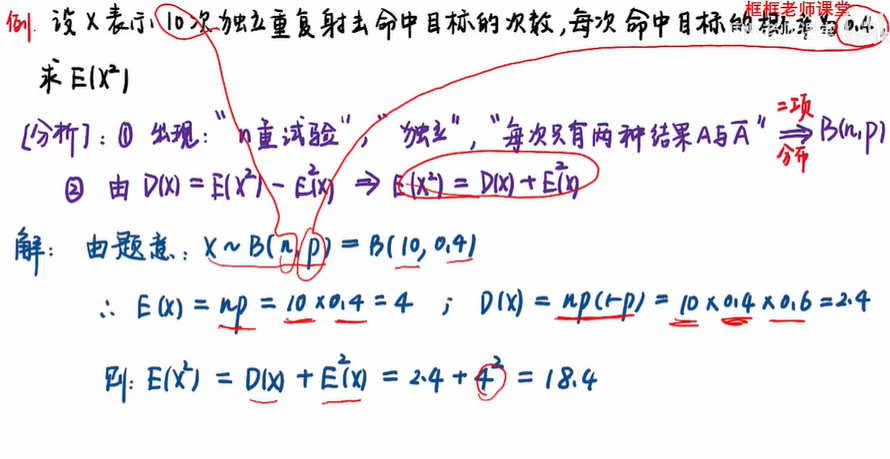 框框老师课堂
例. 设X表示10次独立重复射击命中目标的次数,每次命中目标的概率为0.4,
求E(X²)
[分析]: ① 出现:"n重试验","独立","每次只有两种结果A与Ā" 二项分布⇒ B(n,p)
② 由 D(X) = E(X²) - E²(X) ⇒ E(X²) = D(X) + E²(X)
解: 由题意: X ~ B(n,p) = B(10, 0.4)
∴ E(X) = np = 10×0.4 = 4 ; D(X) = np(1-p) = 10×0.4×0.6 = 2.4
则: E(X²) = D(X) + E²(X) = 2.4 + 4² = 18.4